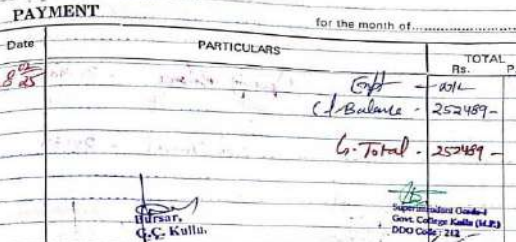 PAYMENT
for the month of
Date PARTICULARS TOTAL
Rs. P.
8 02/25 Exp - Nil
C/Balance - 252489-
G. Total - 252489-
Bursar,
G.C. Kullu.
Superintendent Grade-I
Govt. College Kullu (H.P.)
DDO Code: 212